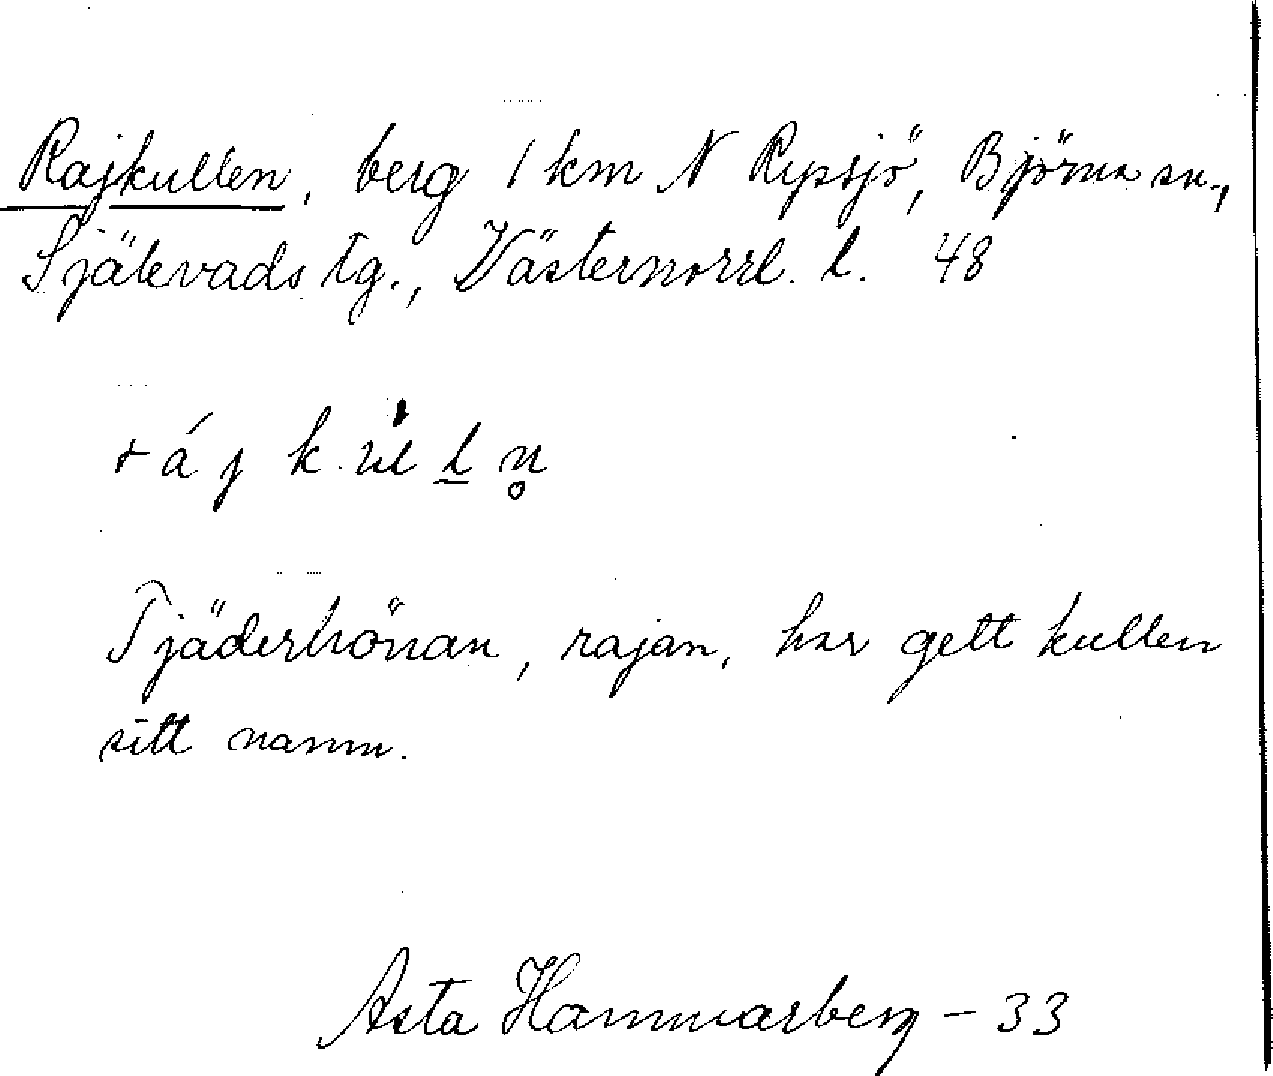 Rajkullen, berg 1 km N Rypsjö, Björna sn.,
Själevads tg., Västernorrl. l. 48
Tjäderhönan, rajan, har gett kullen
sitt namn.
Asta Hammarberg – 33